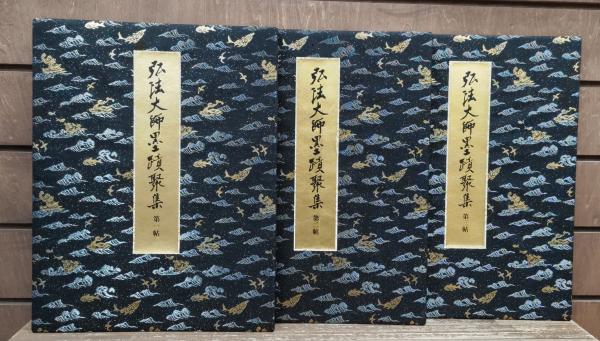 弘法大師墨蹟聚集 第一帖
弘法大師墨蹟聚集 第二帖
弘法大師墨蹟聚集 第一帖